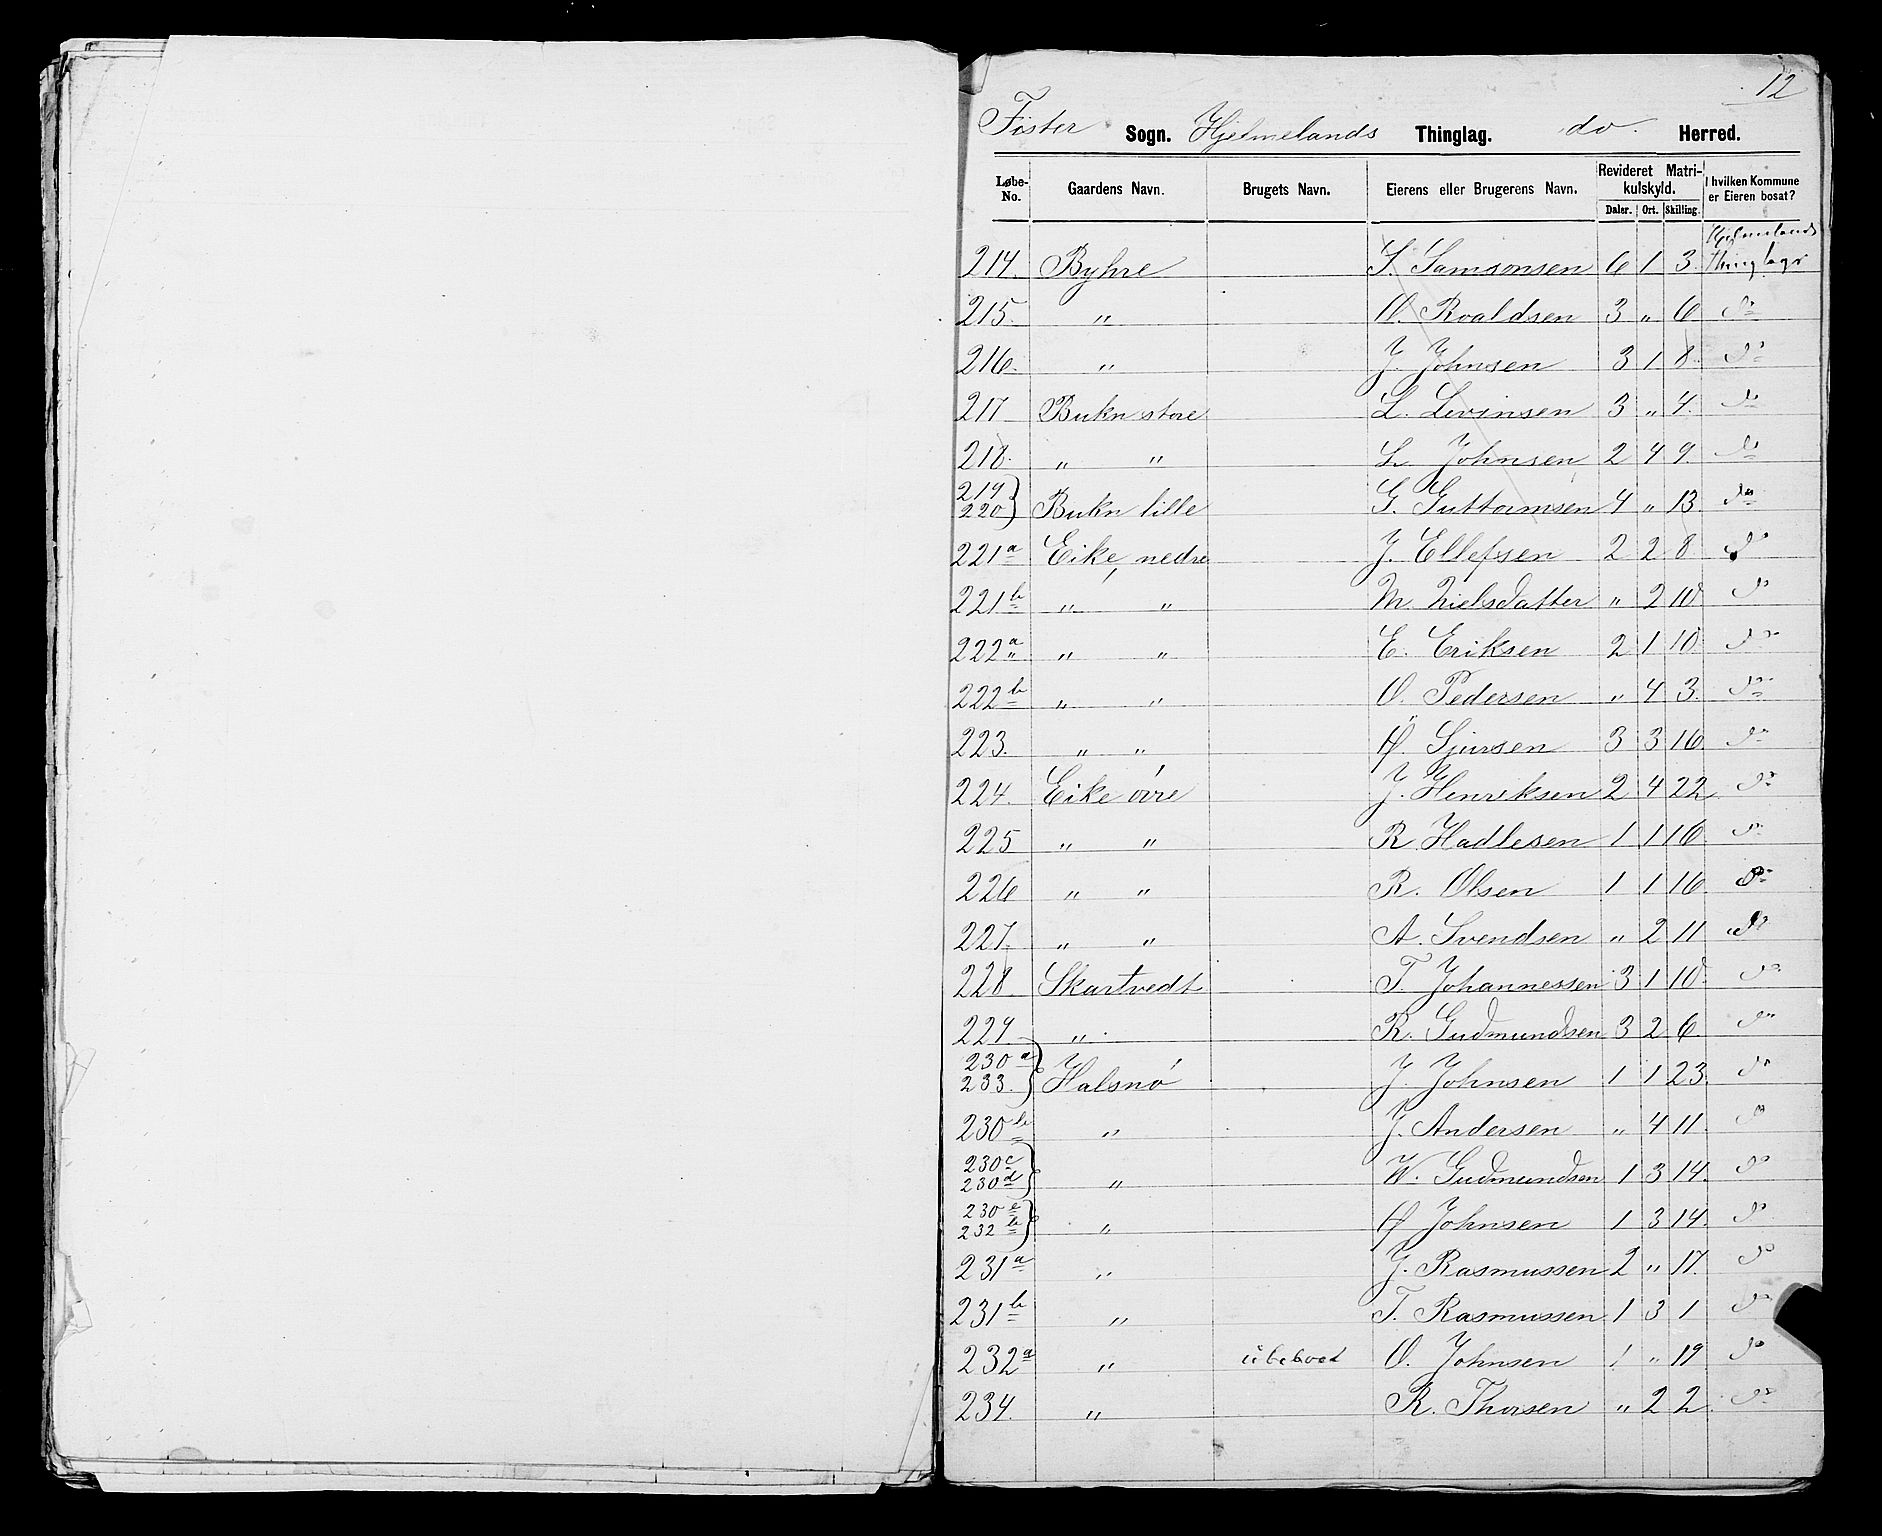 12
Fister Sogn. Hjelmelands Thinglag. do. Herred.
Løbe-No. Gaardens Navn. Brugets Navn. Eierens eller Brugerens Navn. Revideret Matrikulskyld. Daler. Ort. Skilling. I hvilken Kommune er Eieren bosat?
214. Byhre S. Samsonsen 6 1 3. Hjelmelands Thinglags
215. " O. Roaldsen 3 " 6 do
216. " J. Johnsen 3 1 8. do
217 Bukn store L. Levinsen 3 " 4. do
218. " " L. Johnsen 2 4 9. do
219 220 } Bukn lille G. Guttormsen 4 " 13 do
221a Eike, nedre J. Ellefsen 2 2 8 do
221b " " M. Nielsdatter " 2 10 do
222a " " E. Eriksen 2 1 10 do
222b " " O. Pedersen " 4 3. do
223. " " Ø. Sjursen 3 3 16 do
224. Eike övre J. Henriksen 2 4 22 do
225 " " R. Hadlesen 1 1 16 do
226 " " R. Olsen 1 1 16 do
227. " " A. Svendsen " 2 11 do
228 Skartvedt T. Johannessen 3 1 10 do
229. " R. Gudmundsen 3 2 6 do
230a 233. } Halsnö J. Johnsen 1 1 23. do
230b " J. Andersen " 4 11. do
230c 230d } " W. Gudmundsen 1 3 14. do
230e 232b } " Ø Johnsen 1 3 14. do
231a " J. Rasmussen 2 " 17. do
231b " T. Rasmussen 1 3 1 do
232a " übeboet O. Johnsen 1 " 19 do
234. " R. Thorsen " 2 2 do